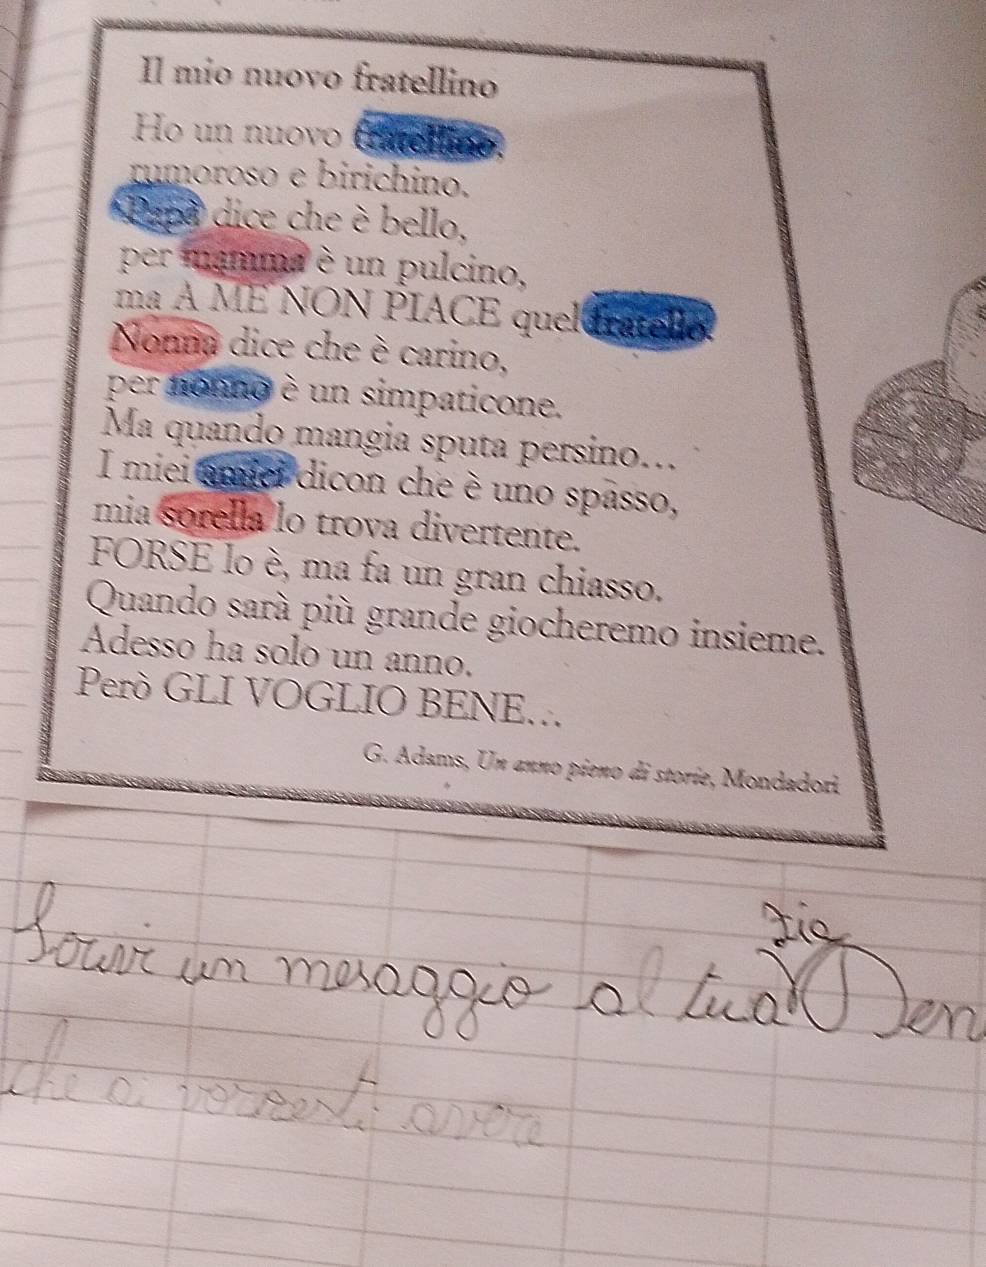 Il mio nuovo fratellino
Ho un nuovo fratellino,
rumoroso e birichino.
Papà dice che è bello,
per mamma è un pulcino,
ma A ME NON PIACE quel fratello.
Nonna dice che è carino,
per nonno è un simpaticone.
Ma quando mangia sputa persino...
I miei amici dicon che è uno spasso,
mia sorella lo trova divertente.
FORSE lo è, ma fa un gran chiasso.
Quando sarà più grande giocheremo insieme.
Adesso ha solo un anno.
Però GLI VOGLIO BENE...
G. Adams, Un anno pieno di storie, Mondadori
un mesaggio al
che avere